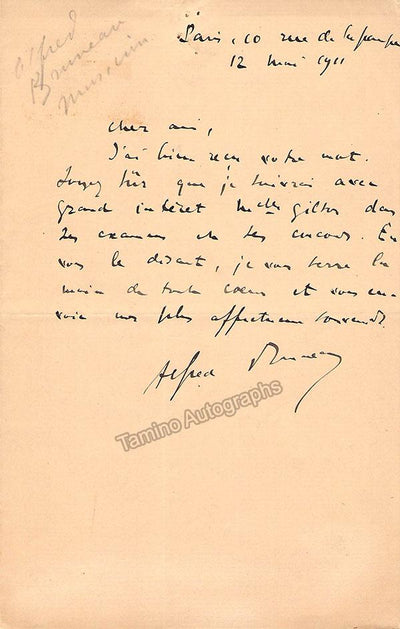 Alfred
Bruneau
musicien
Paris, 10 rue de la pompe
12 mai 1911
cher ami,
J'ai bien reçu votre mot.
Soyez sûr que je suivrai avec
grand intérêt Melle dans
ses examens et ses concours. En
vous le disant, je vous serre la
main de tout cœur et vous en-
voie nos plus affectueux souvenirs.
Alfred Bruneau
Tamino Autographs